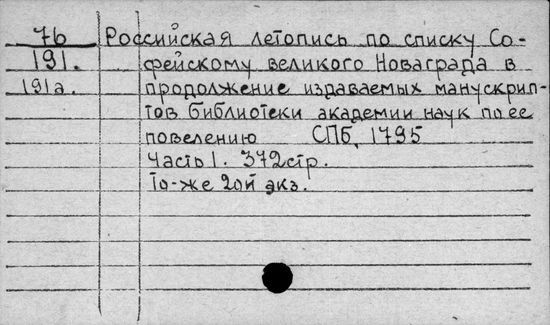 76 Российская летопись по списку Со-
191. фейскому великого Новаграда в
191а. продолжение издаваемых манускрип-
тов библиотеки академии наук по ее
повелению СПб, 1795
Часть I. 372стр.
То-же 2ой экз.